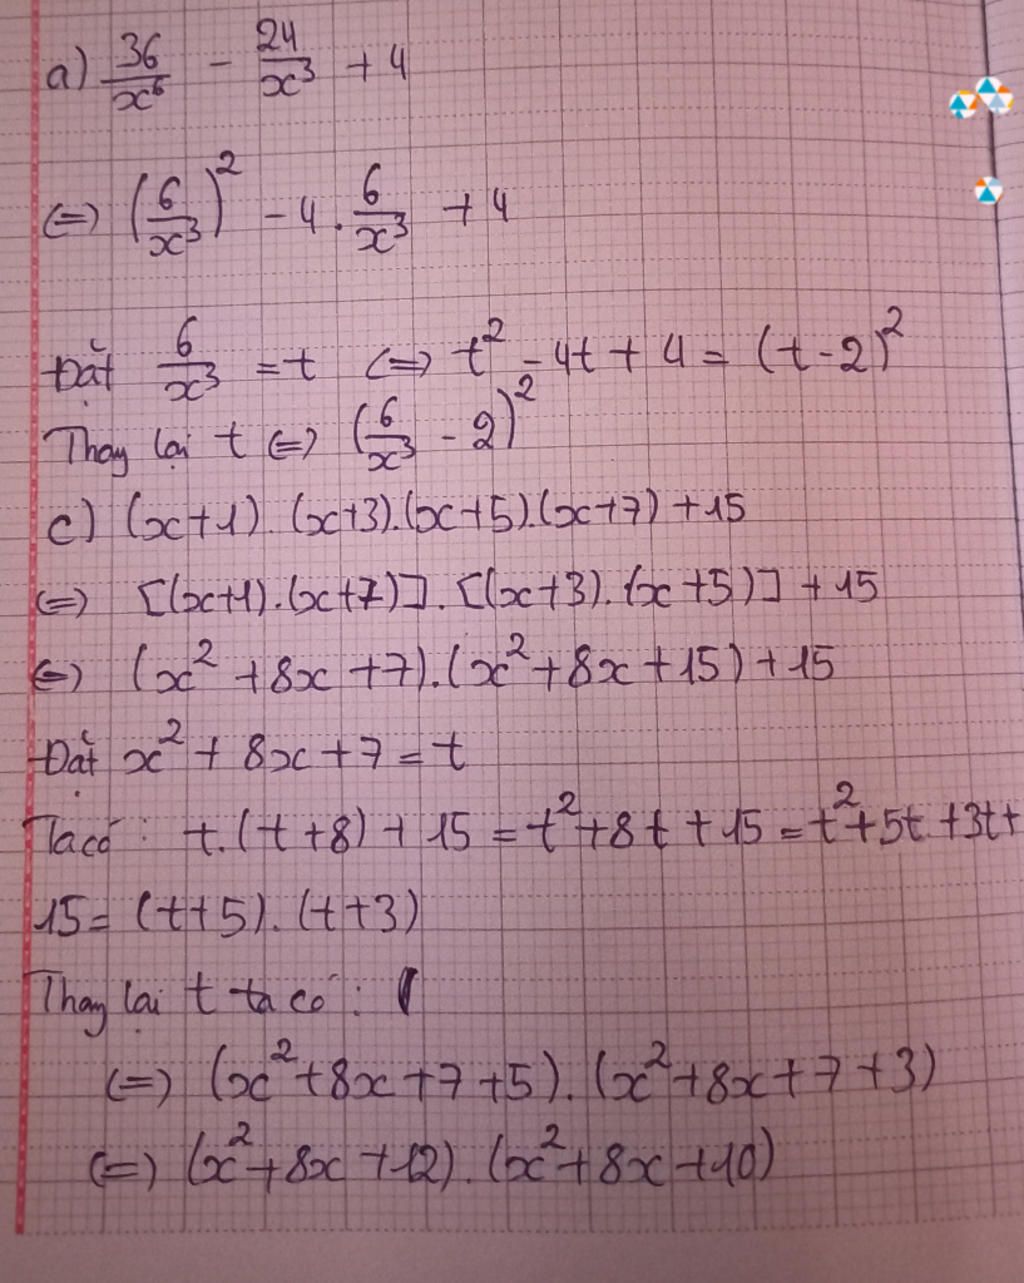 a) 36/x⁶ - 24/x³ + 4
(=) (6/x³)² - 4 . 6/x³ + 4
Đặt 6/x³ = t (=) t² - 4t + 4 = (t-2)²
Thay lại t (=) (6/x³ - 2)²
c) (x+1). (x+3).(x+5).(x+7) + 15
(=) [(x+1).(x+7)]. [(x+3). (x+5)] + 15
(=) (x² + 8x + 7).(x² + 8x + 15) + 15
Đặt x² + 8x + 7 = t
Ta có : t.(t+8) + 15 = t² + 8t + 15 = t² + 5t + 3t +
15 = (t+5). (t+3)
Thay lại t ta có :
(=) (x² + 8x + 7 + 5). (x² + 8x + 7 + 3)
(=) (x² + 8x + 12). (x² + 8x + 10)